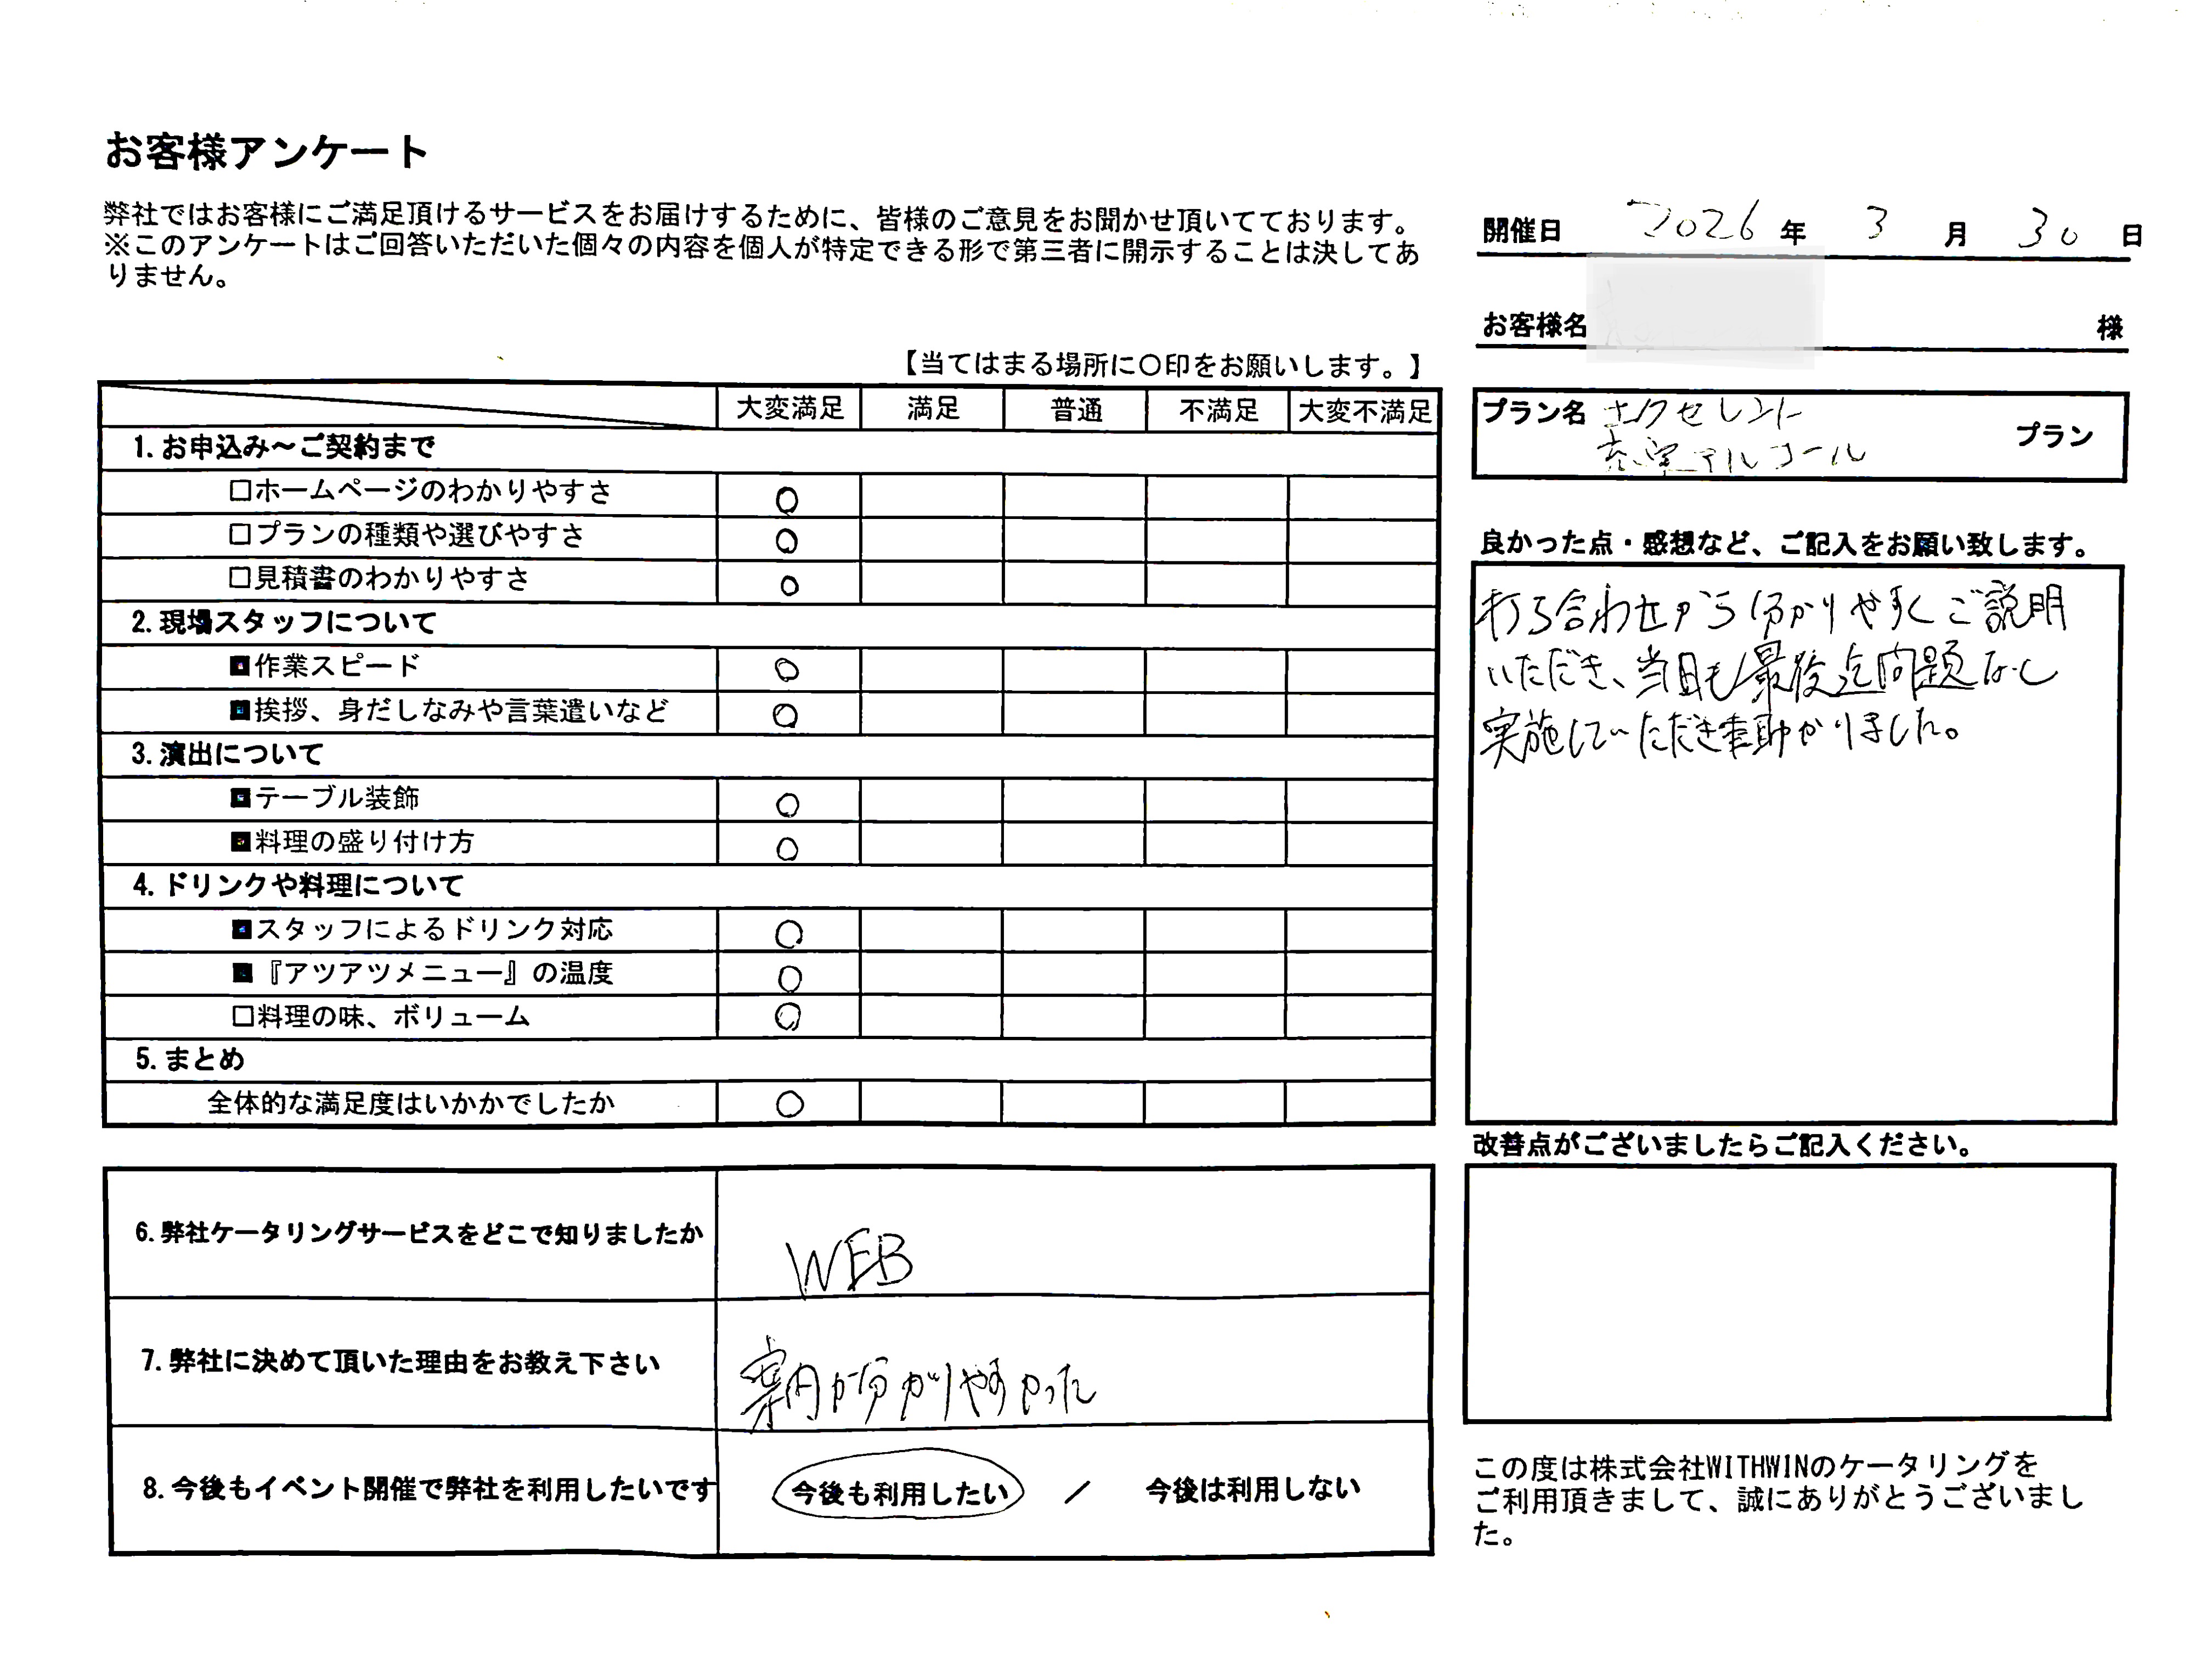 お客様アンケート
弊社ではお客様にご満足頂けるサービスをお届けするために、皆様のご意見をお聞かせ頂いてております。
※このアンケートはご回答いただいた個々の内容を個人が特定できる形で第三者に開示することは決してあ
りません。
開催日 2026 年 3 月 30 日
お客様名 様
【当てはまる場所に〇印をお願いします。】
プラン名 エクセレント
アルコール プラン
大変満足 満足 普通 不満足 大変不満足
1. お申込み～ご契約まで
□ホームページのわかりやすさ ○
□プランの種類や選びやすさ ○
□見積書のわかりやすさ ○
2. 現場スタッフについて
■作業スピード ○
■挨拶、身だしなみや言葉遣いなど ○
3. 演出について
■テーブル装飾 ○
■料理の盛り付け方 ○
4. ドリンクや料理について
■スタッフによるドリンク対応 ○
■『アツアツメニュー』の温度 ○
□料理の味、ボリューム ○
5. まとめ
全体的な満足度はいかかでしたか ○
良かった点・感想など、ご記入をお願い致します。
打ち合わせから分かりやすくご説明
いただき、当日も最後迄問題なし
実施していただき助かりました。
改善点がございましたらご記入ください。
6. 弊社ケータリングサービスをどこで知りましたか WEB
7. 弊社に決めて頂いた理由をお教え下さい 案内が分かりやすかった
8. 今後もイベント開催で弊社を利用したいです 今後も利用したい ／ 今後は利用しない
この度は株式会社WITHWINのケータリングを
ご利用頂きまして、誠にありがとうございまし
た。